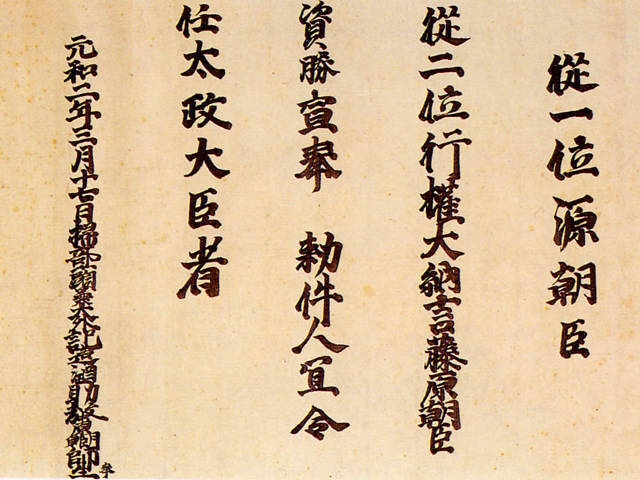 從一位源朝臣
從二位行權大納言藤原朝臣
資勝宣奉 勅件人宜令
任太政大臣者
元和二年三月十七日掃部頭兼大外記造酒正助教中原朝臣師生奉